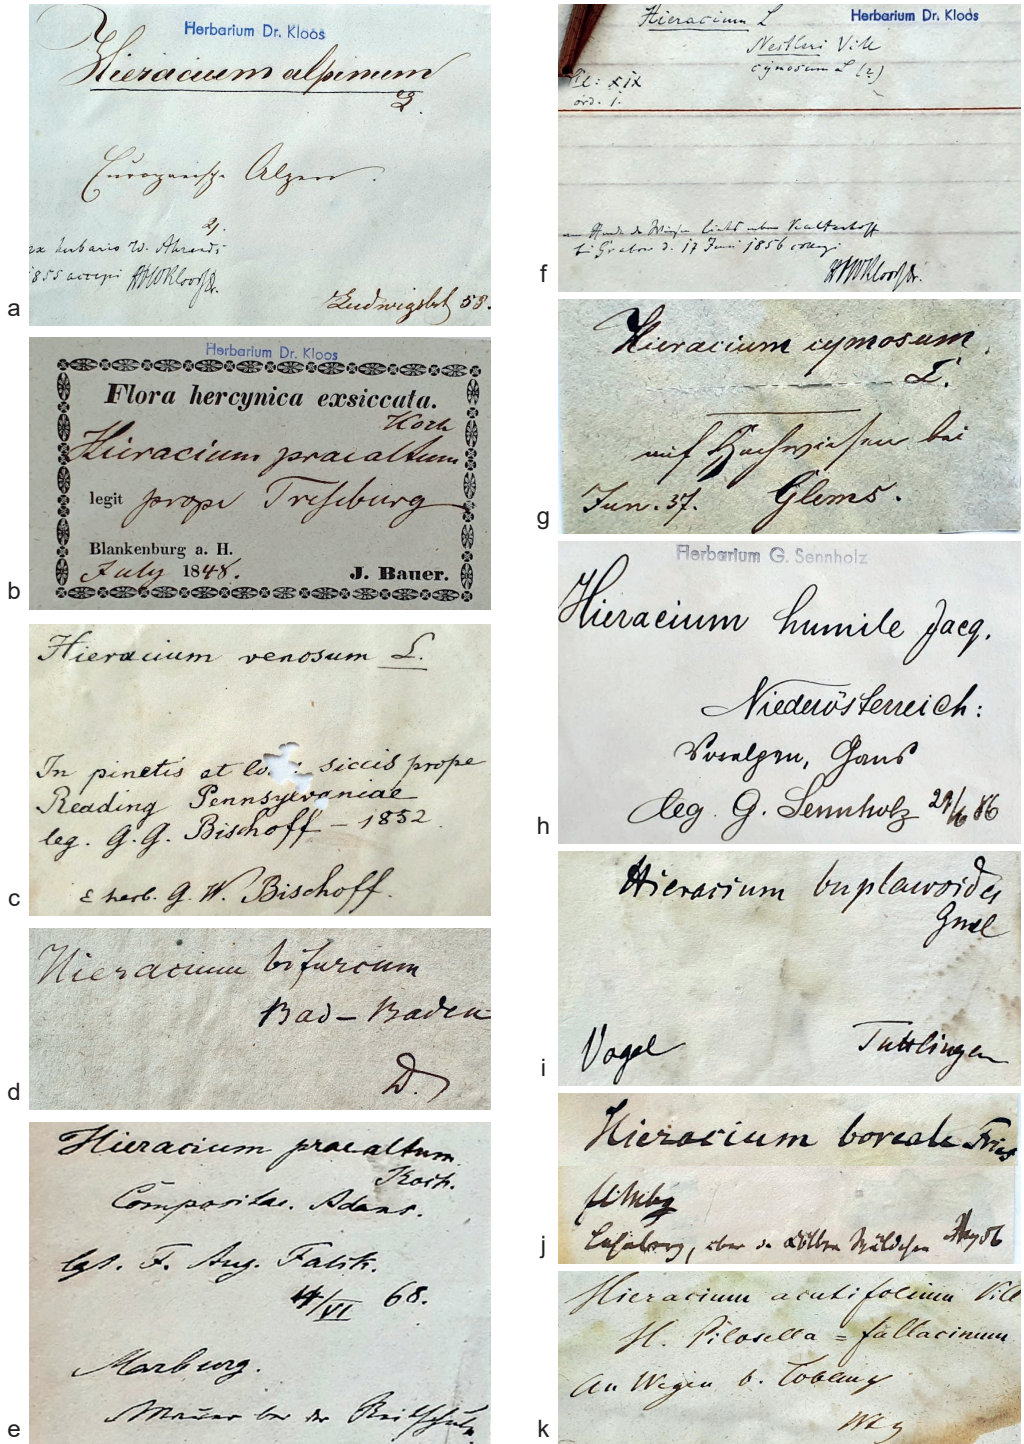 Herbarium Dr. Kloos
Hieracium alpinum
L.
Europäische Alpen.
ex herbario W. Ahrends
1855 accepi
Ludwigsbg 53.
a
Herbarium Dr. Kloos
Flora hercynica exsiccata.
Koch
Hieracium praealtum
legit prope Treseburg
Blankenburg a. H.
July 1848. J. Bauer.
b
Hieracium venosum L.
In pinetis et siccis prope
Reading Pennsylvaniae
leg. G. G. Bischoff – 1852
E herb. G. W. Bischoff.
c
Hieracium bifurcum
Bad – Baden
D.
d
Hieracium praealtum
Koch.
Compositae. Adans.
lgt. F. Aug. Falck.
/VI 68.
Marburg.
Mauer bei der Reitschule
e
Hieracium L Herbarium Dr. Kloos
Nestleri Vill
cymosum L (2)
Cl: XIX
ord. 1.
bei Graben d. 17 Juni 1856
f
Hieracium cymosum
L.
auf Hochwiesen bei
Jun. 37. Glems.
g
Herbarium G. Sennholz
Hieracium humile Jacq.
Niederösterreich:
Voralpen, Gans
leg. G. Sennholz 29/6 86
h
Hieracium bupleuroides
Gmel
Vogel Tuttlingen
i
Hieracium boreale Fries
Wäldchen
j
Hieracium acutifolium Vill
H. Pilosella = fallacinum
An Wegen b. Toblung
Wtg
k